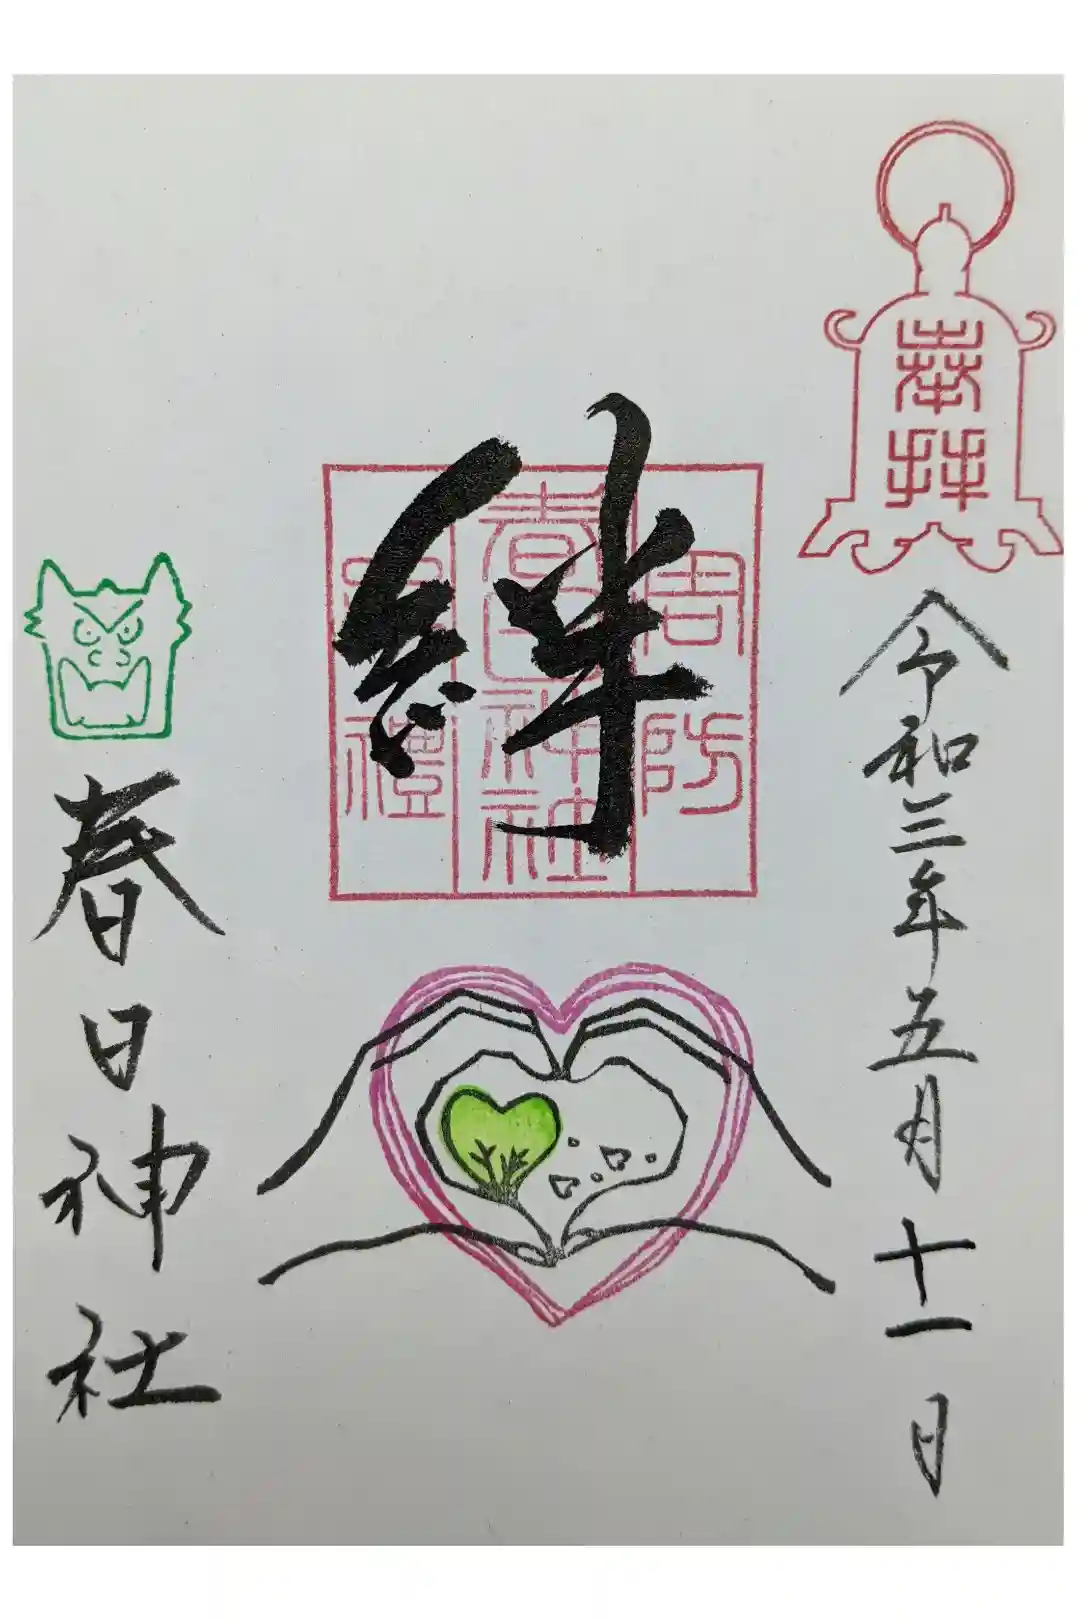 奉拝
令和三年五月十一日
周防
春日神社
絆
春日神社